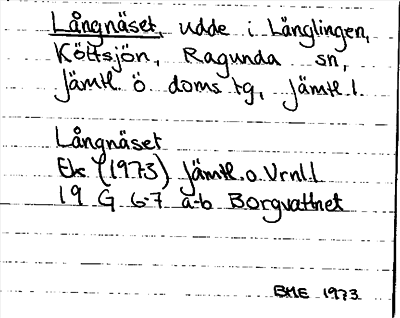 Långnäset, udde i Länglingen,
Köttsjön, Ragunda sn,
Jämtl. ö. doms tg, Jämtl. l.
Långnäset
Ek (1973) Jämtl. o. Vrnl. l
19 G 6-7 a-b Borgvattnet
BME 1973